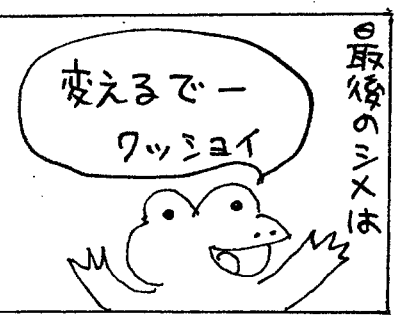 最後のシメは
変えるでー
ワッショイ